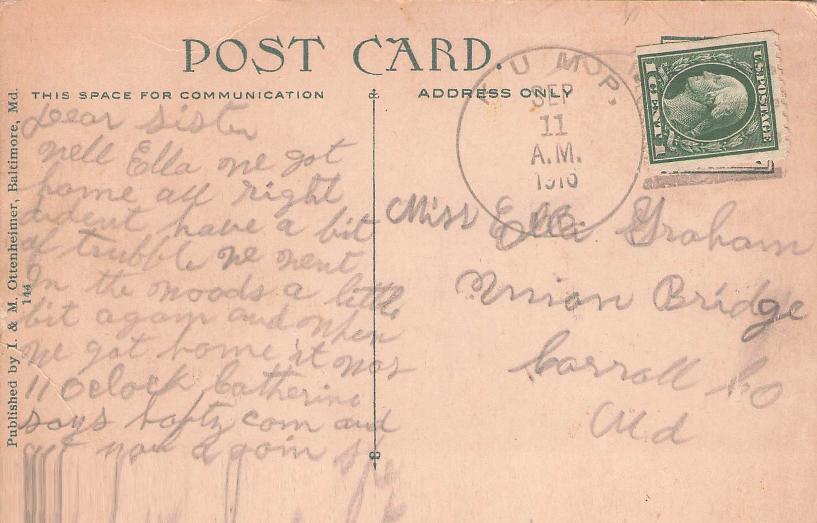 POST CARD.
THIS SPACE FOR COMMUNICATION
ADDRESS ONLY
Published by I. & M. Ottenheimer, Baltimore, Md.
144
SEP
11
A.M.
1916
U.S. POSTAGE
1 CENT 1
Dear Sister
Well Ella we got
home all right
dident have a bit
of trubble we went
In the woods a little
bit again and when
we got home it was
11 Oclock Catherine
says com and
now again
Miss Ella Graham
Union Bridge
Carroll Co
Md